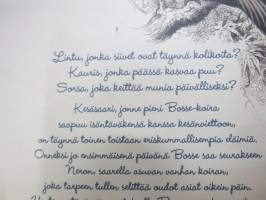 Lintu, jonka siivet ovat täynnä kolikoita?
Kauris, jonka päässä kasvaa puu?
Sorsa, joka keittää munia päivälliseksi?
Kesäsaari, jonne pieni Bosse-koira
saapuu isäntäväkensä kanssa kesänviettoon,
on täynnä toinen toistaan eriskummallisempia eläimiä.
Onneksi jo ensimmäisenä päivänä Bosse saa seurakseen
Neron, saarella asuvan vanhan koiran,
joka tarpeen tullen selittää oudot asiat oikein päin.